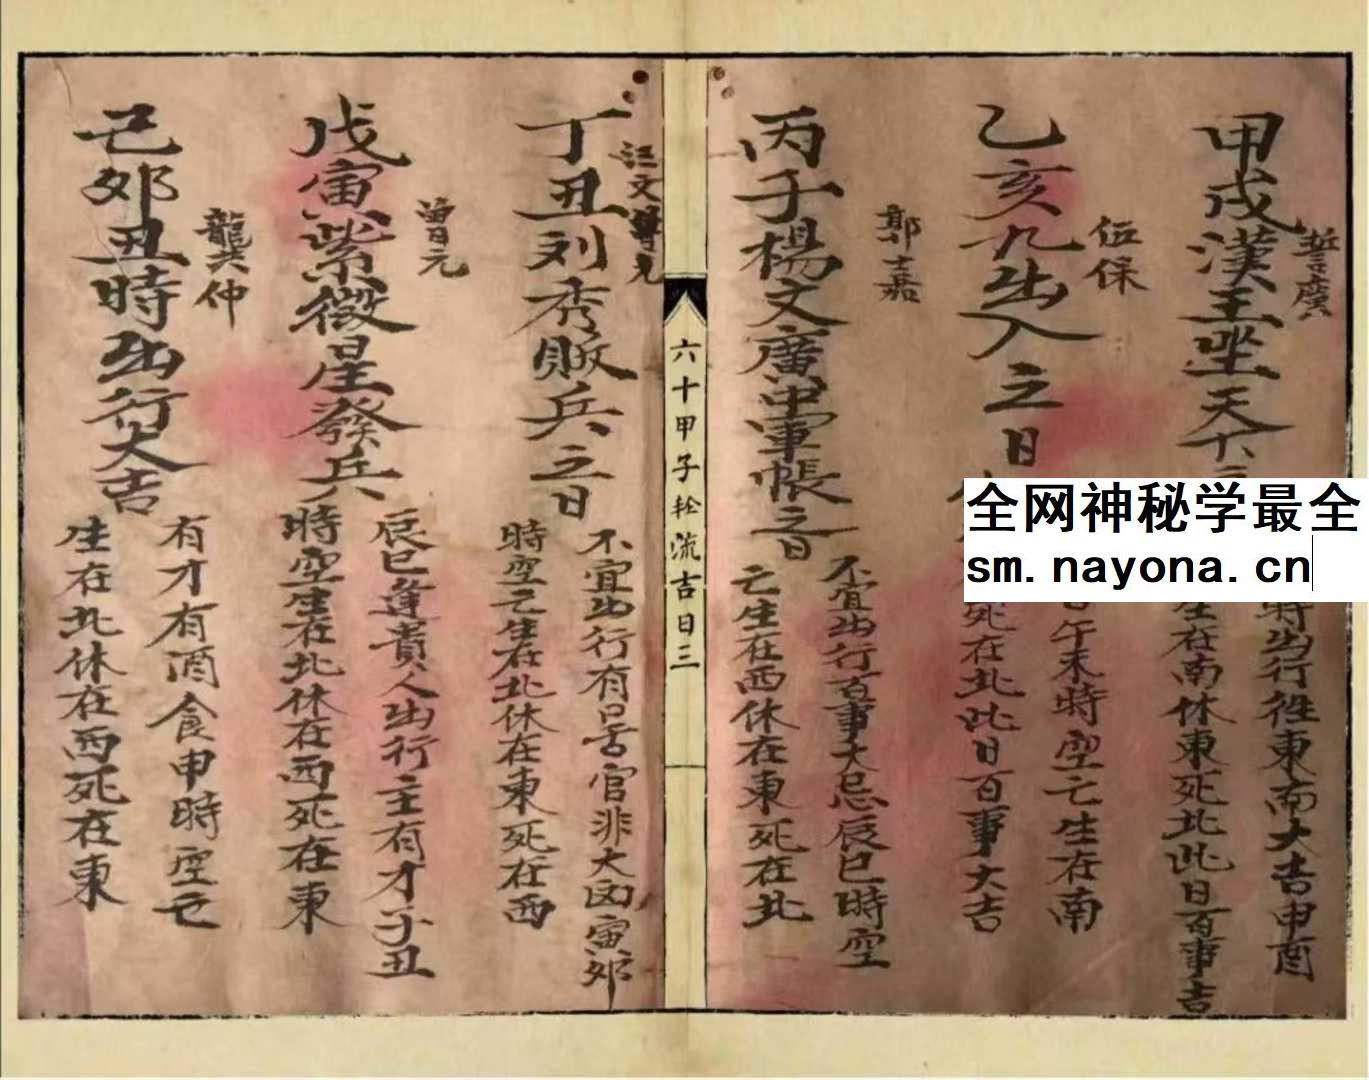 甲戌漢王坐天十二
誓廣
時出行徃東南大吉申酉
生在南休東死北此日百事吉
乙亥九出入之日
伍保
午未時空亡生在南
死在北此日百事大吉
丙子楊文廣中軍帳之日
郭士嘉
不宜出行百事大忌辰巳時空
亡生在西休在東死在北
六十甲子轮流吉日三
丁丑刘秀敗兵之日
江文
不宜出行有口舌官非大凶寅夘
時空亡生在北休在東死在西
戊寅紫微星發兵
曾日元
辰巳逢貴人出行主有才子丑
時空生在北休在西死在東
己夘丑時出行大吉
龍共仲
有才有酒食申時空亡
生在北休在西死在東
全网神秘学最全
sm.nayona.cn